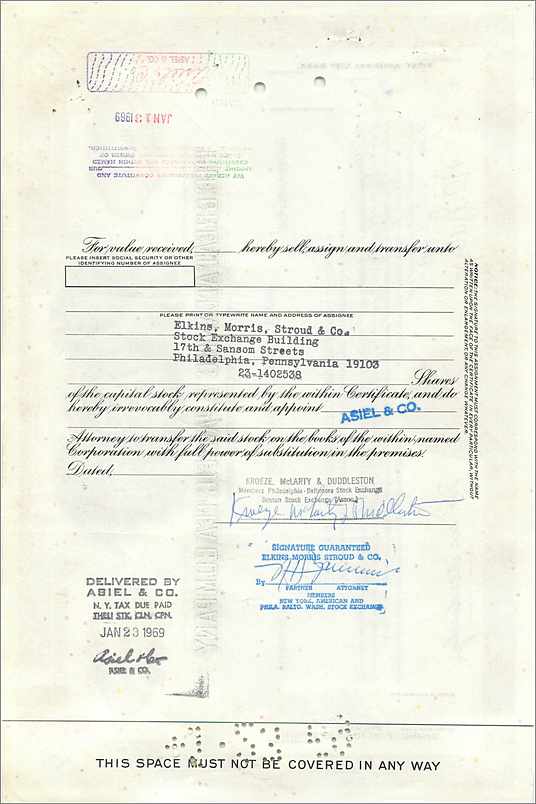 ASIEL & CO.
JAN 13 1969
For value received, hereby sell, assign and transfer unto
PLEASE INSERT SOCIAL SECURITY OR OTHER
IDENTIFYING NUMBER OF ASSIGNEE
PLEASE PRINT OR TYPEWRITE NAME AND ADDRESS OF ASSIGNEE
Elkins, Morris, Stroud & Co.
Stock Exchange Building
17th & Sansom Streets
Philadelphia, Pennsylvania 19103
23-1402538
Shares
of the capital stock represented by the within Certificate, and do
hereby irrevocably constitute and appoint
ASIEL & CO.
Attorney to transfer the said stock on the books of the within named
Corporation with full power of substitution in the premises.
Dated,
NOTICE: THE SIGNATURE TO THIS ASSIGNMENT MUST CORRESPOND WITH THE NAME
AS WRITTEN UPON THE FACE OF THE CERTIFICATE IN EVERY PARTICULAR, WITHOUT
ALTERATION OR ENLARGEMENT OR ANY CHANGE WHATEVER.
KROEZE, McLARTY & DUDDLESTON
Members Philadelphia-Baltimore Stock Exchange
Boston Stock Exchange (Assoc.)
Kroeze McLarty & Duddleston
SIGNATURE GUARANTEED
ELKINS MORRIS STROUD & CO.
By
PARTNER ATTORNEY
MEMBERS
NEW YORK, AMERICAN AND
PHILA. BALTO. WASH. STOCK EXCHANGE
DELIVERED BY
ASIEL & CO.
N. Y. TAX DUE PAID
THRU STK. CLR. CPN.
JAN 23 1969
Asiel & Co
ASIEL & CO.
THIS SPACE MUST NOT BE COVERED IN ANY WAY